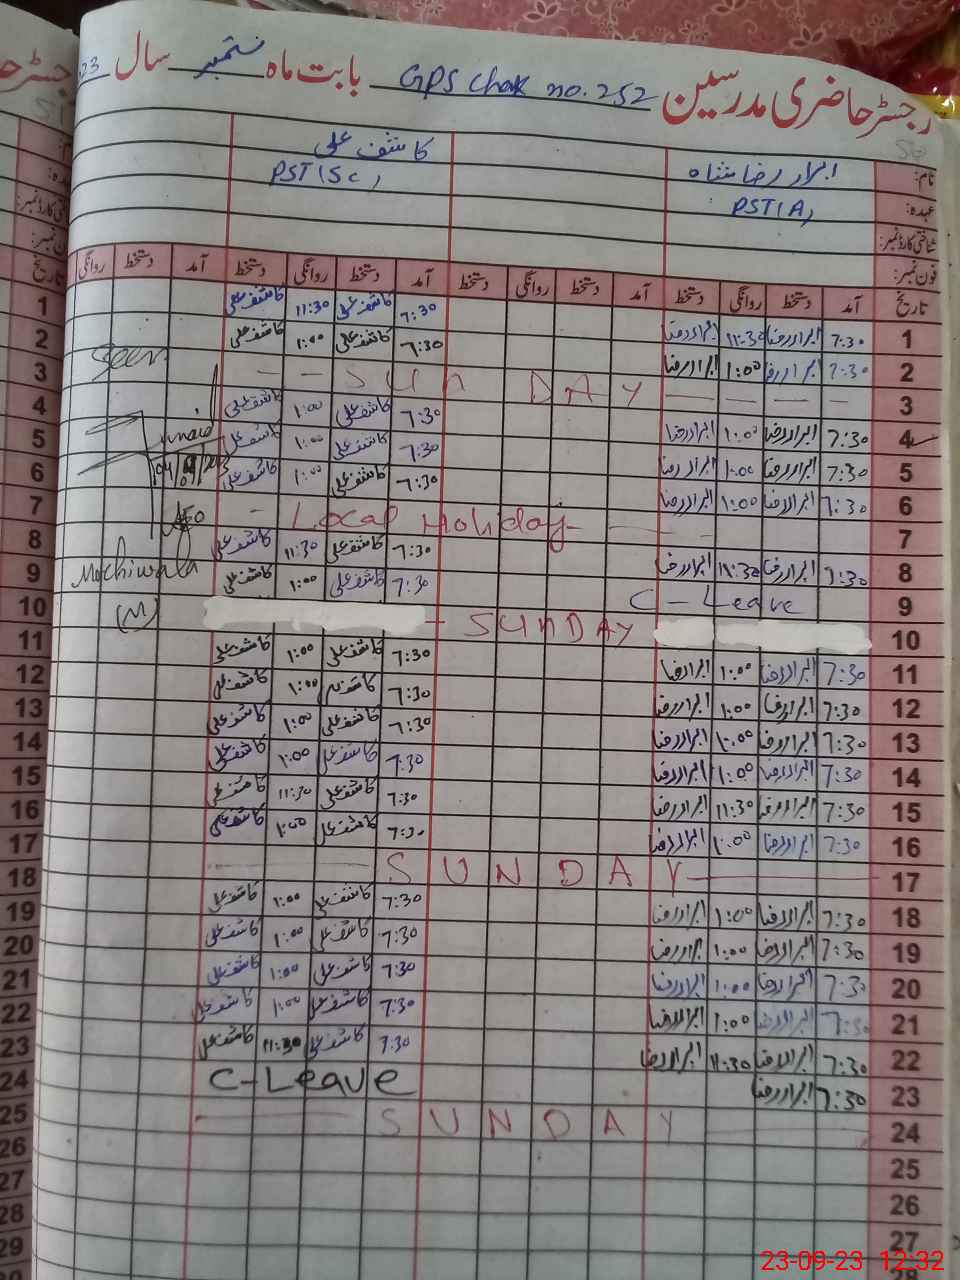 رجسٹر حاضری مدرسین GPS Chak no. 252 بابت ماہ ستمبر سال 23
نام: ابرار رضا شاہ کاشف علی
عہدہ: PST(A) PST(Sc)
شناختی کارڈ نمبر:
فون نمبر:
تاریخ آمد دستخط روانگی دستخط آمد دستخط روانگی دستخط آمد دستخط روانگی دستخط آمد دستخط روانگی تاریخ
1 7:30 ابرار رضا 11:30 ابرار رضا 7:30 کاشف علی 11:30 کاشف علی 1
2 7:30 ابرار رضا 1:00 ابرار رضا 7:30 کاشف علی 1:00 کاشف علی 2
3 SUNDAY Seen 3
4 7:30 ابرار رضا 1:00 ابرار رضا 7:30 کاشف علی 1:00 کاشف علی 4
5 7:30 ابرار رضا 1:00 ابرار رضا 7:30 کاشف علی 1:00 کاشف علی Junaid 5
6 7:30 ابرار رضا 1:00 ابرار رضا 7:30 کاشف علی 1:00 کاشف علی 6
7 Local Holiday AEO 7
8 7:30 ابرار رضا 11:30 ابرار رضا 7:30 کاشف علی 11:30 کاشف علی 8
9 C-Leave 7:30 کاشف علی 1:00 کاشف علی Mochiwala 9
10 SUNDAY (M) 10
11 7:30 ابرار رضا 1:00 ابرار رضا 7:30 کاشف علی 1:00 کاشف علی 11
12 7:30 ابرار رضا 1:00 ابرار رضا 7:30 کاشف علی 1:00 کاشف علی 12
13 7:30 ابرار رضا 1:00 ابرار رضا 7:30 کاشف علی 1:00 کاشف علی 13
14 7:30 ابرار رضا 1:00 ابرار رضا 7:30 کاشف علی 1:00 کاشف علی 14
15 7:30 ابرار رضا 11:30 ابرار رضا 7:30 کاشف علی 11:30 کاشف علی 15
16 7:30 ابرار رضا 1:00 ابرار رضا 7:30 کاشف علی 1:00 کاشف علی 16
17 SUNDAY 17
18 7:30 ابرار رضا 1:00 ابرار رضا 7:30 کاشف علی 1:00 کاشف علی 18
19 7:30 ابرار رضا 1:00 ابرار رضا 7:30 کاشف علی 1:00 کاشف علی 19
20 7:30 ابرار رضا 1:00 ابرار رضا 7:30 کاشف علی 1:00 کاشف علی 20
21 7:30 ابرار رضا 1:00 ابرار رضا 7:30 کاشف علی 1:00 کاشف علی 21
22 7:30 ابرار رضا 11:30 ابرار رضا 7:30 کاشف علی 11:30 کاشف علی 22
23 7:30 ابرار رضا C-Leave 23
24 SUNDAY 24
25 25
26 26
27 27
28 28
29
23-09-23 12:32